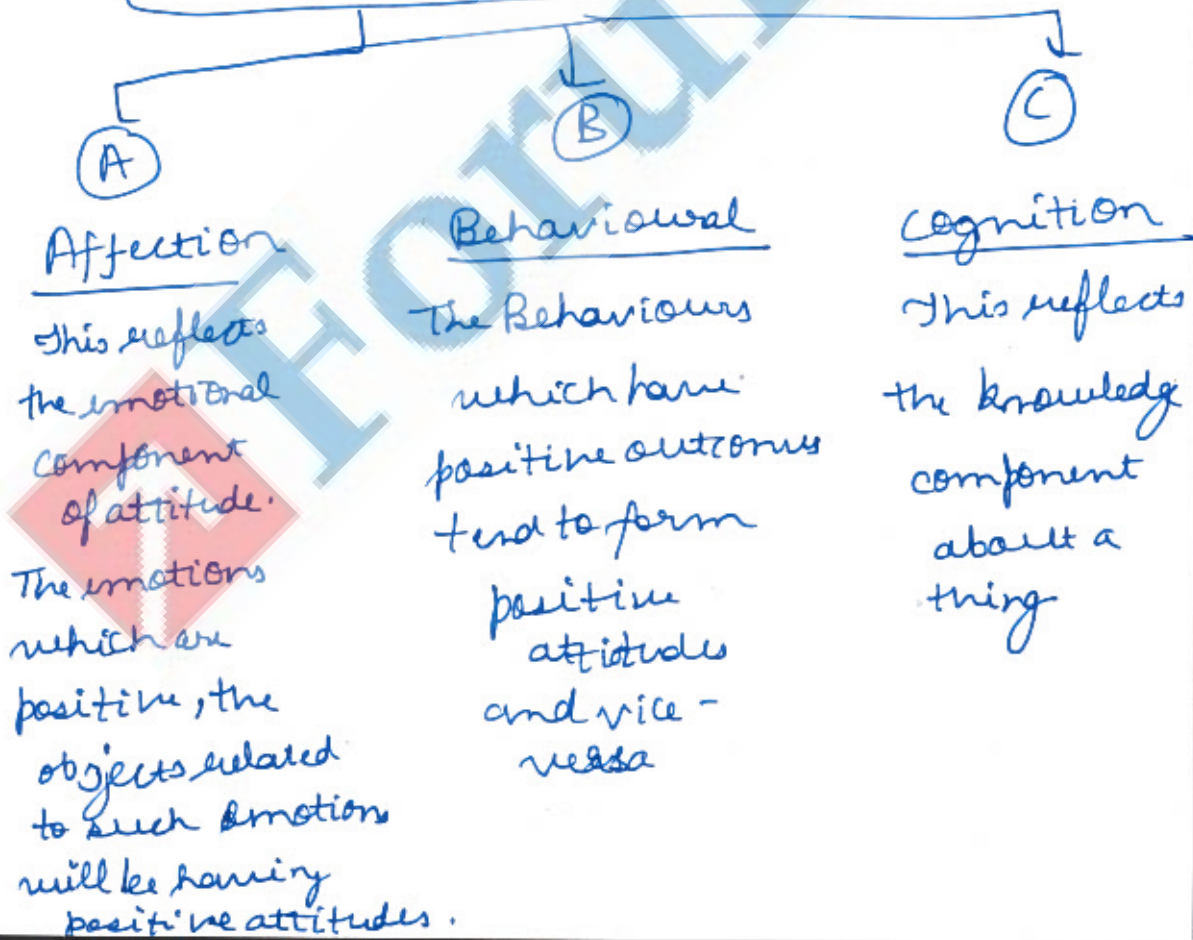 A
B
C
Affection
This reflects
the emotional
component
of attitude.
The emotions
which are
positive, the
objects related
to such emotions
will be having
positive attitudes.
Behavioural
The Behaviours
which have
positive outcomes
tend to form
positive
attitudes
and vice-
versa
Cognition
This reflects
the knowledge
component
about a
thing
Foru